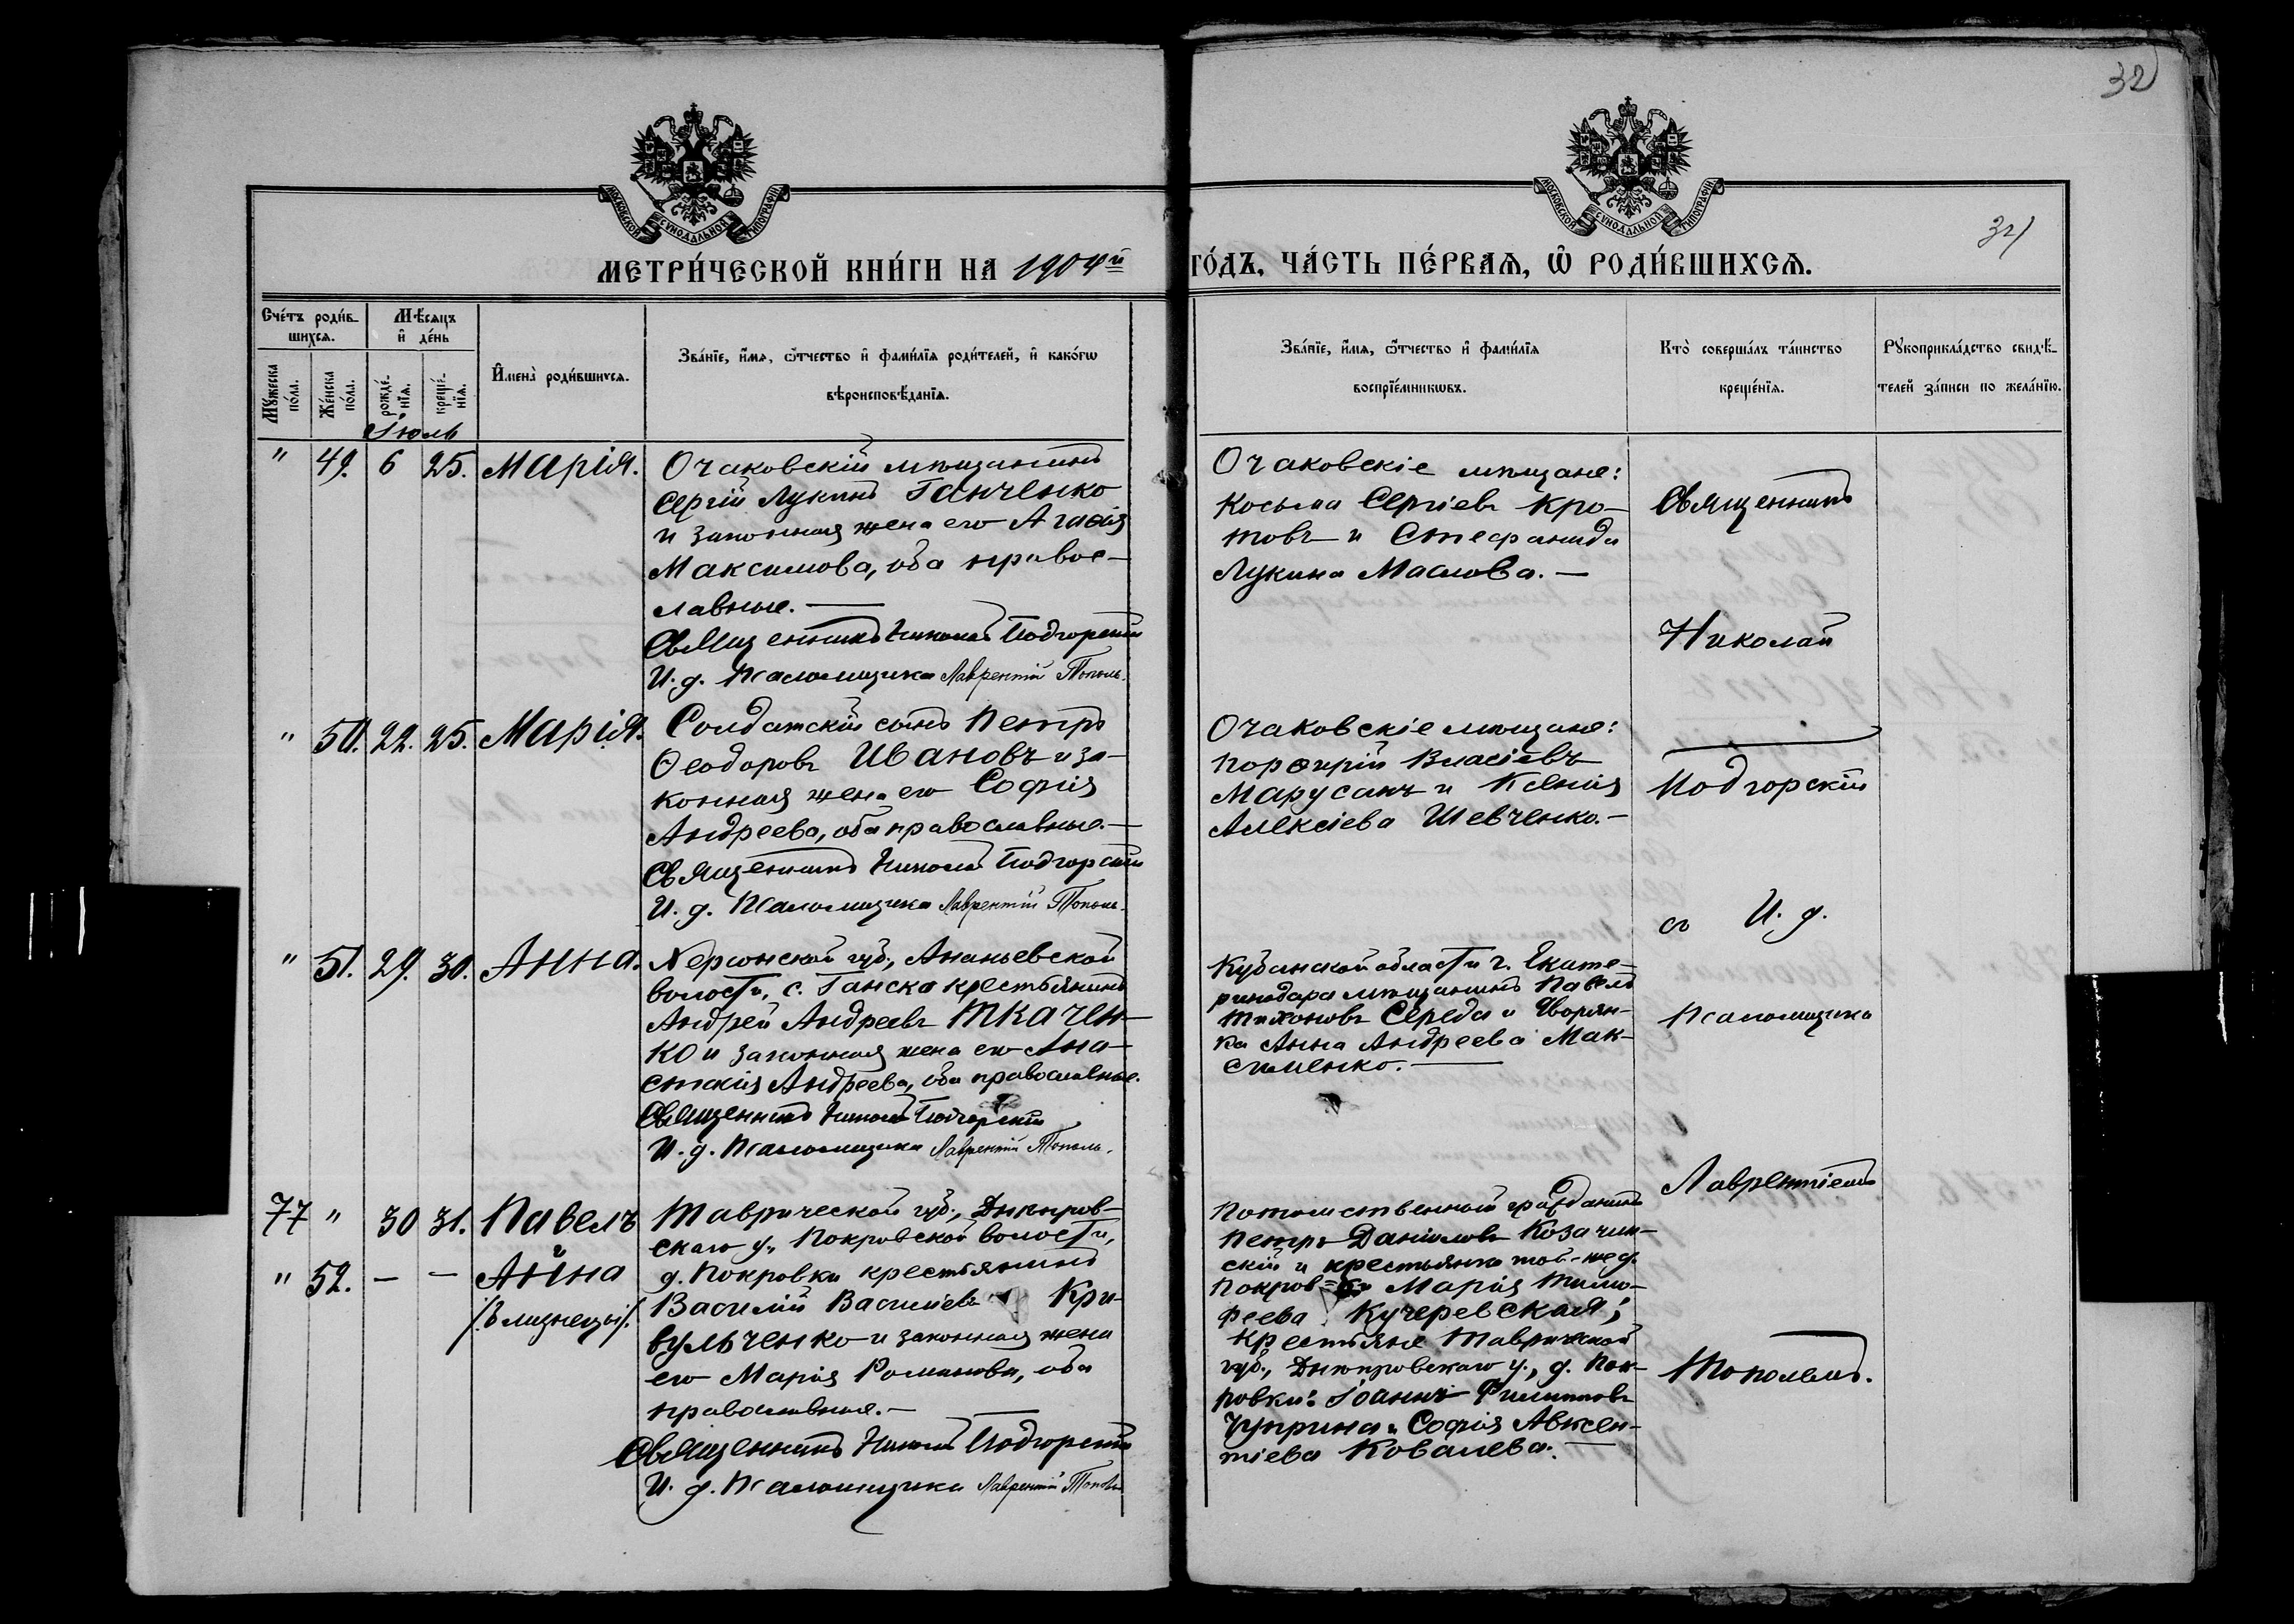 32
МОСКОВСКОЙ СѴНОДАЛЬНОЙ ТИПОГРАФІИ
МОСКОВСКОЙ СѴНОДАЛЬНОЙ ТИПОГРАФІИ
31
МЕТРИ́ЧЕСКОЙ КНИ́ГИ НА 1904й
ГО́ДЪ, ЧА́СТЬ ПЕ́РВАѦ, Ѡ҆ РОДИ́ВШИХСѦ.
Сче́тъ роди́в-
шихсѧ.
Мꙋ́жеска по́ла.
Же́нска по́ла.
Мѣ́сѧцъ
и҆ де́нь
рожде́-
нїѧ.
креще́-
нїѧ.
И҆мена̀ роди́вшихсѧ.
Зва́нїе, и҆́мѧ, ѻ҆́тчество и҆ фами́лїѧ роди́телей, и҆ како́гѡ
вѣроисповѣ́данїѧ.
Зва́нїе, и҆́мѧ, ѻ҆́тчество и҆ фами́лїѧ
воспрїе́мникѡвъ.
Кто̀ соверша́лъ та́инство
креще́нїѧ.
Рꙋкоприкла́дство свидѣ́-
телей за́писи по жела́нїю.
Іюль
" 49. 6 25. Марія.
Очаковскій мѣщанинъ
Сергій Лукинъ Ганченко
и законная жена его Агаѳія
Максимова, оба правос-
лавные. —
Священникъ Николай Подгорскій
И. д. Псаломщика Лаврентій Тополь.
Очаковскіе мѣщане:
Косьма Сергіевъ Кро-
товъ и Стефанида
Лукина Маслова. —
" 50. 22. 25. Марія.
Солдатскій сынъ Петръ
Ѳеодоровъ Ивановъ и за-
конная жена его Софія
Андреева, оба православные. —
Священникъ Николай Подгорскій
И. д. Псаломщика Лаврентій Тополь.
Очаковскіе мѣщане:
Порфирій Власіевъ
Марусанъ и Ксенія
Алексіева Шевченко. —
" 51. 29. 30. Анна.
Херсонской губ., Ананьевской
волости, с. Ганска крестьянинъ
Андрей Андреевъ Ткачен-
ко и законная жена его Ана-
стасія Андреева, оба православные.
Священникъ Николай Подгорскій
И. д. Псаломщика Лаврентій Тополь.
Кубанской области г. Екате-
ринодара мѣщанинъ Павелъ
Тихоновъ Середа и Дворян-
ка Анна Андреева Мак-
сименко. —
77 " 30 31. Павелъ
" 52. — — Анна
/Близнецы/.
Таврической губ., Днѣпров-
скаго у., Покровской волости,
д. Покровки крестьянинъ
Василій Васильевъ Кри-
вульченко и законная жена
его Марія Романова, оба
православные. —
Священникъ Николай Подгорскій
И. д. Псаломщика Лаврентій Тополь
Потомственный гражданинъ
Петръ Даніиловъ Козачин-
скій и крестьянка той-же д.
Покров- Марія Тимо-
феева Кучеревская;
Крестьяне Таврической
губ., Днѣпровскаго у., д. Пок-
ровки: Іоаннъ Филипповъ
Чуприна и Софія Авксен-
тіева Ковалева. —
Священникъ
Николай
Подгорскій
съ И. д.
Псаломщика
Лаврентіемъ
Тополемъ.